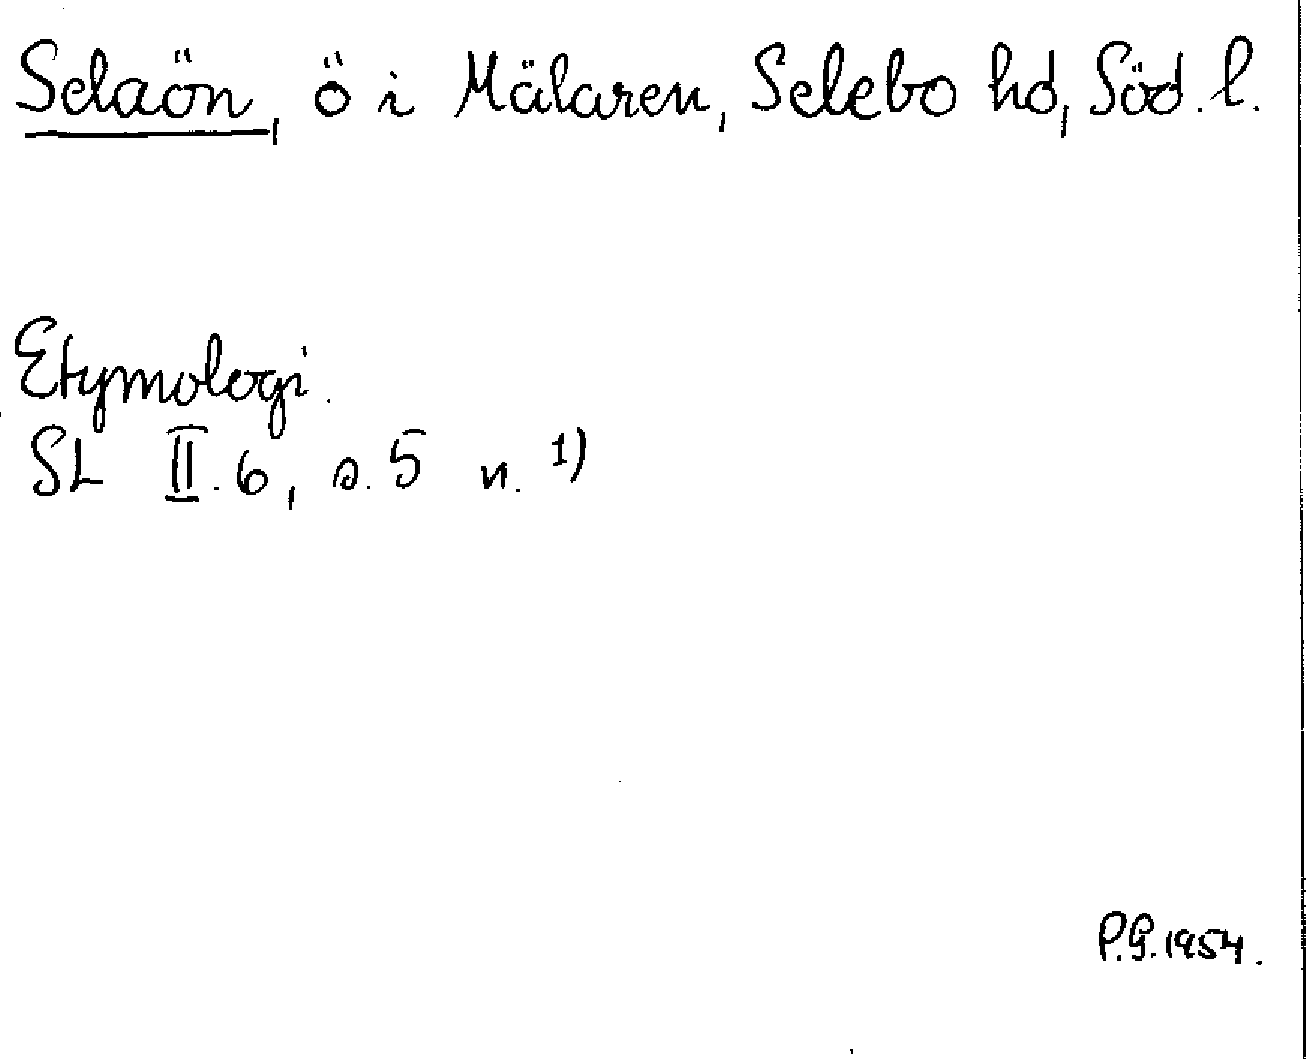 Selaön, ö i Mälaren, Selebo hd, Söd. l.
Etymologi.
SL II.6, s. 5 n. 1)
P.G. 1954.